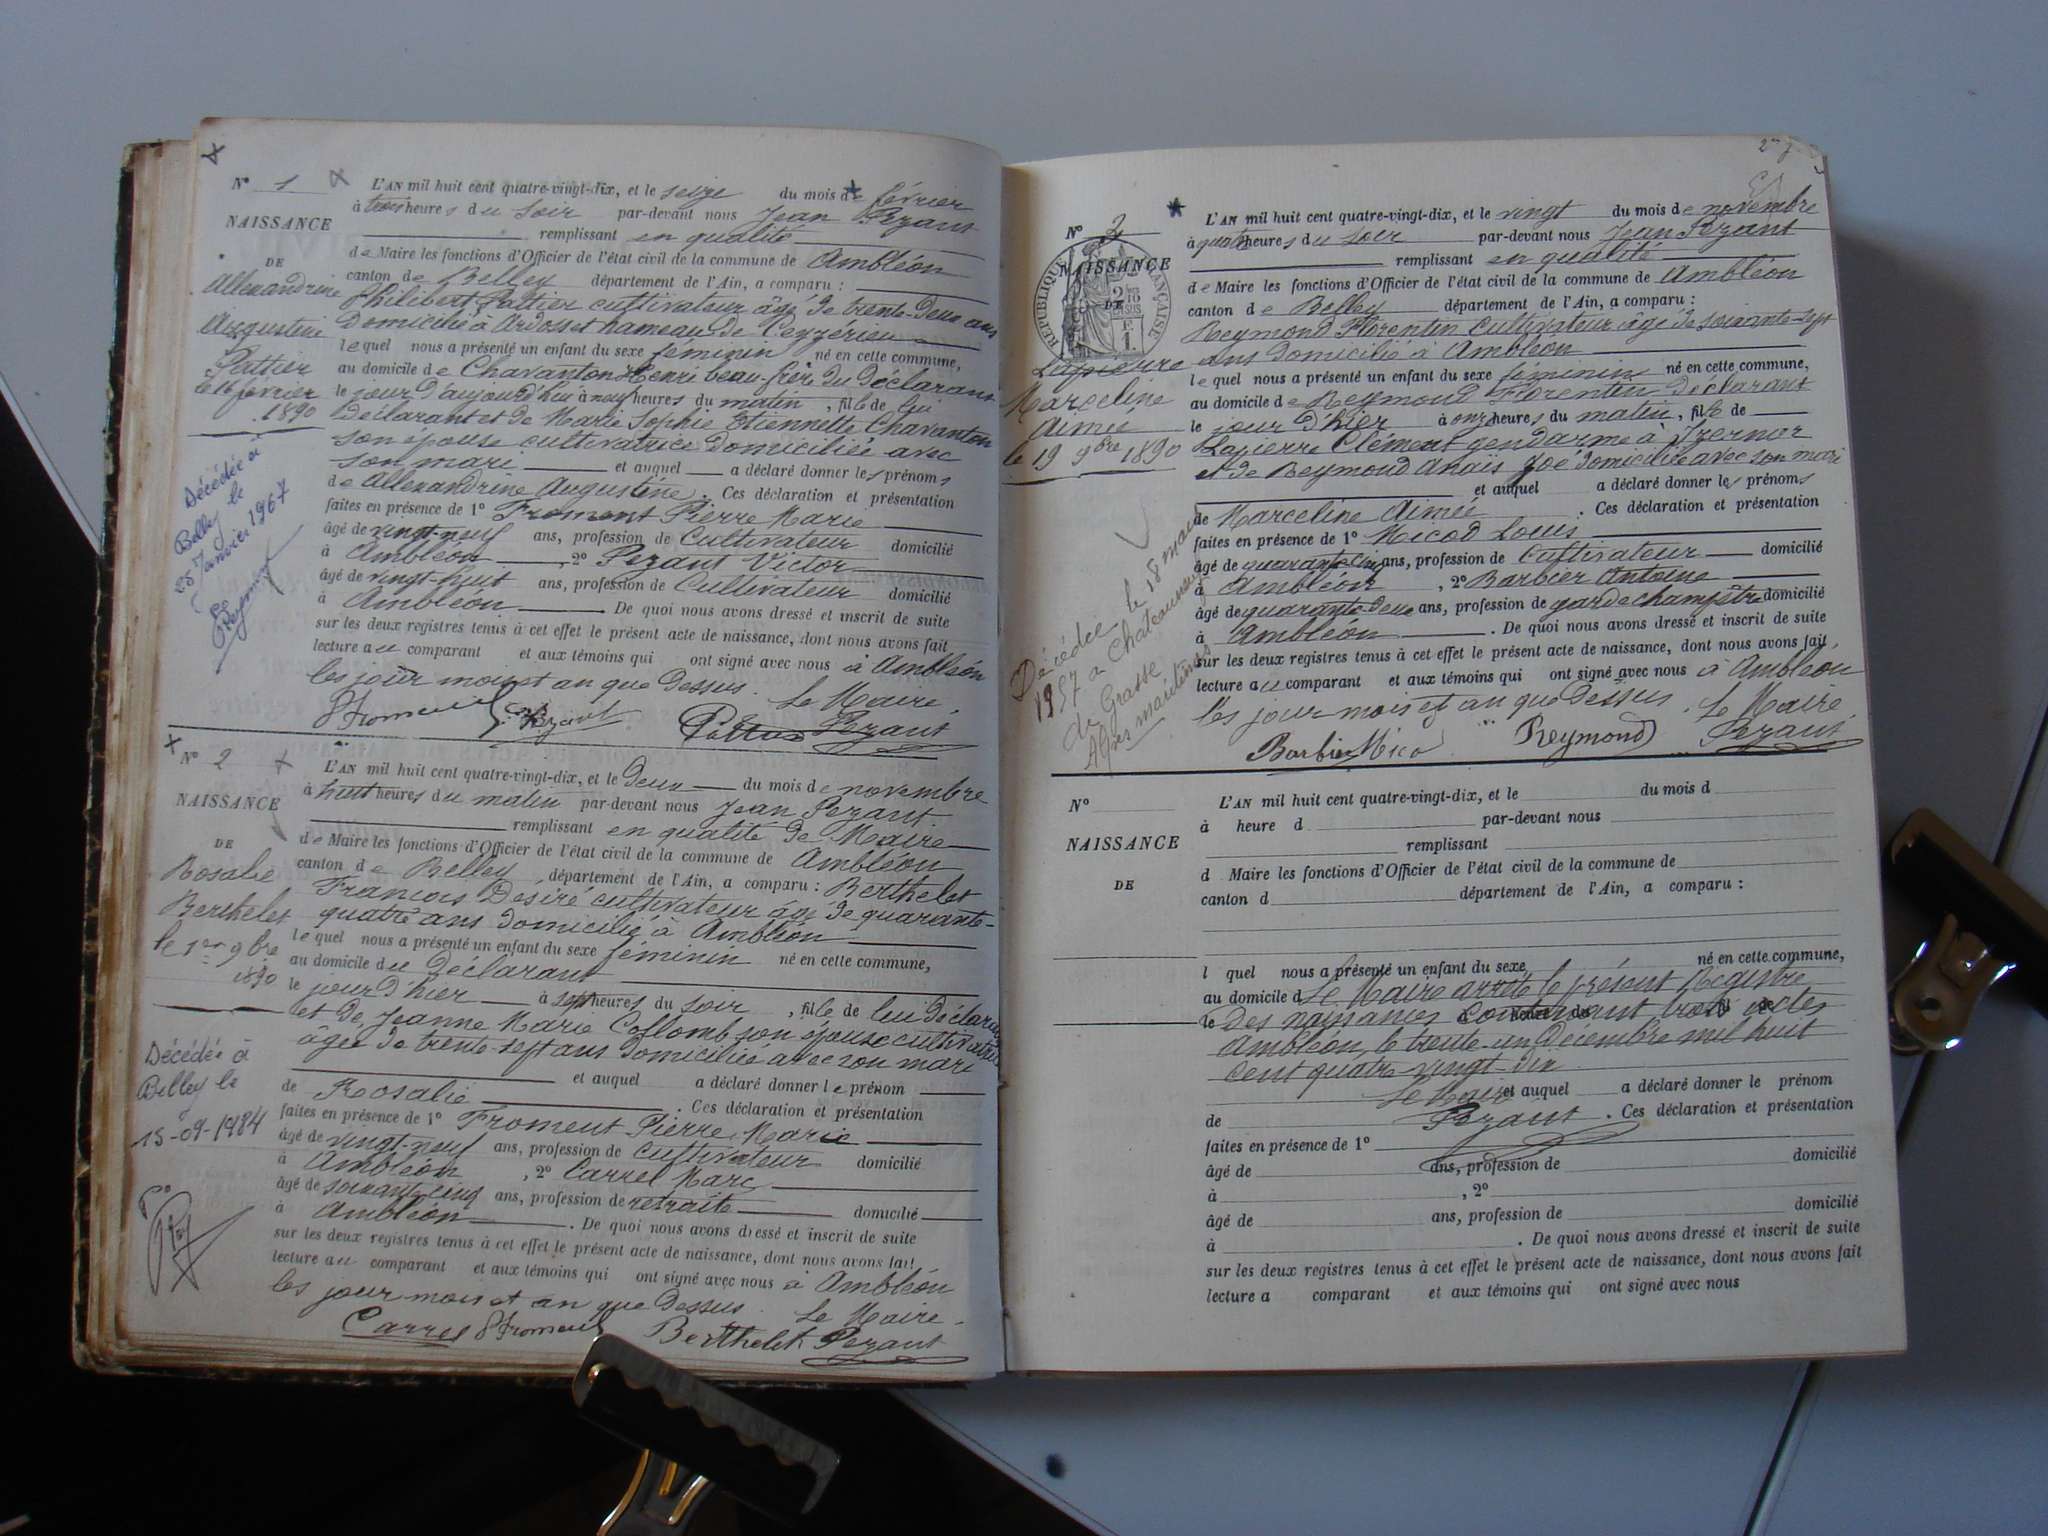 N° 1
NAISSANCE
DE
Allexandrine
Augustine
Pattier
le 16 février
1890
Décédée à
Belley le
25 Janvier 1967
L'AN mil huit cent quatre-vingt-dix, et le seize du mois de février
à trois heures du soir par-devant nous Jean Pezant
remplissant en qualité
de Maire les fonctions d'Officier de l'état civil de la commune de Ambléon
canton de Belley département de l'Ain, a comparu :
Philibert Pattier cultivateur âgé de trente-deux ans
domicilié à Ardosset hameau de Ceyzérieu
lequel nous a présenté un enfant du sexe féminin né en cette commune,
au domicile de Chavanton Henri beau-frère du déclarant
le jour d'aujourd'hui à neuf heures du matin, fille de lui
déclarant et de Marie Sophie Etiennette Chavanton
son épouse cultivatrice domiciliée avec
son mari et auquel a déclaré donner les prénoms
de Allexandrine Augustine. Ces déclaration et présentation
faites en présence de 1° Froment Pierre Marie
âgé de vingt-neuf ans, profession de Cultivateur domicilié
à Ambléon, 2° Pezant Victor
âgé de vingt-huit ans, profession de Cultivateur domicilié
à Ambléon. De quoi nous avons dressé et inscrit de suite
sur les deux registres tenus à cet effet le présent acte de naissance, dont nous avons fait
lecture au comparant et aux témoins qui ont signé avec nous à Ambléon
les jour mois et an que dessus. Le Maire,
Froment Pezant Pattier Pezant
N° 2
NAISSANCE
DE
Rosalie
Berthelet
le 1er 9bre
1890
Décédée à
Belley le
15-09-1984
L'AN mil huit cent quatre-vingt-dix, et le deux du mois de novembre
à huit heures du matin par-devant nous Jean Pezant
remplissant en qualité de Maire
de Maire les fonctions d'Officier de l'état civil de la commune de Ambléon
canton de Belley, département de l'Ain, a comparu : Berthelet
François Desiré cultivateur âgé de quarante-
quatre ans domicilié à Ambléon
lequel nous a présenté un enfant du sexe féminin né en cette commune,
au domicile du déclarant
le jour d'hier à sept heures du soir, fille de lui déclarant
et de Jeanne Marie Collomb son épouse cultivatrice
âgée de trente-sept ans domiciliée avec son mari
et auquel a déclaré donner le prénom
de Rosalie. Ces déclaration et présentation
faites en présence de 1° Froment Pierre Marie
âgé de vingt-neuf ans, profession de Cultivateur domicilié
à Ambléon, 2° Carrel Marc
âgé de soixante cinq ans, profession de retraité domicilié
à Ambléon. De quoi nous avons dressé et inscrit de suite
sur les deux registres tenus à cet effet le présent acte de naissance, dont nous avons fait
lecture au comparant et aux témoins qui ont signé avec nous à Ambléon
les jour mois et an que dessus. Le Maire.
Carrel Froment Berthelet Pezant
N° 3
NAISSANCE
DE
RÉPUBLIQUE FRANÇAISE
Lapierre
Marceline
Aimée
le 19 9bre 1890
Décédée le 18 mars
1957 à Chateauneuf
de Grasse
Alpes maritimes
L'AN mil huit cent quatre-vingt-dix, et le vingt du mois de novembre
à quatre heures du soir par-devant nous Jean Pezant
remplissant en qualité
de Maire les fonctions d'Officier de l'état civil de la commune de Ambléon
canton de Belley département de l'Ain, a comparu :
Reymond Florentin cultivateur âgé de soixante-sept
ans domicilié à Ambléon
lequel nous a présenté un enfant du sexe féminin né en cette commune,
au domicile de Reymond Florentin déclarant
le jour d'hier à onze heures du matin, fille de
Lapierre Clément gendarme à Izernor
et de Reymond Anaïs Zoé domiciliée avec son mari
et auquel a déclaré donner les prénoms
de Marceline Aimée. Ces déclaration et présentation
faites en présence de 1° Nicod Louis
âgé de quarante cinq ans, profession de Cultivateur domicilié
à Ambléon, 2° Barbier Antoine
âgé de quarante deux ans, profession de garde champêtre domicilié
à Ambléon. De quoi nous avons dressé et inscrit de suite
sur les deux registres tenus à cet effet le présent acte de naissance, dont nous avons fait
lecture au comparant et aux témoins qui ont signé avec nous à Ambléon
les jour mois et an que dessus. Le Maire
Barbier Nico Reymond Pezant
N°
NAISSANCE
DE
L'AN mil huit cent quatre-vingt-dix, et le du mois d
à heure d par-devant nous
remplissant
d Maire les fonctions d'Officier de l'état civil de la commune de
canton d département de l'Ain, a comparu :
l quel nous a présenté un enfant du sexe né en cette commune,
au domicile d Le Maire arrête le présent Registre
le des naissances contenant trois actes
Ambléon, le trente-un Décembre mil huit
cent quatre vingt-dix
Le Maire et auquel a déclaré donner le prénom
de Pezant. Ces déclaration et présentation
faites en présence de 1°
âgé de ans, profession de domicilié
à , 2°
âgé de ans, profession de domicilié
à . De quoi nous avons dressé et inscrit de suite
sur les deux registres tenus à cet effet le présent acte de naissance, dont nous avons fait
lecture a comparant et aux témoins qui ont signé avec nous